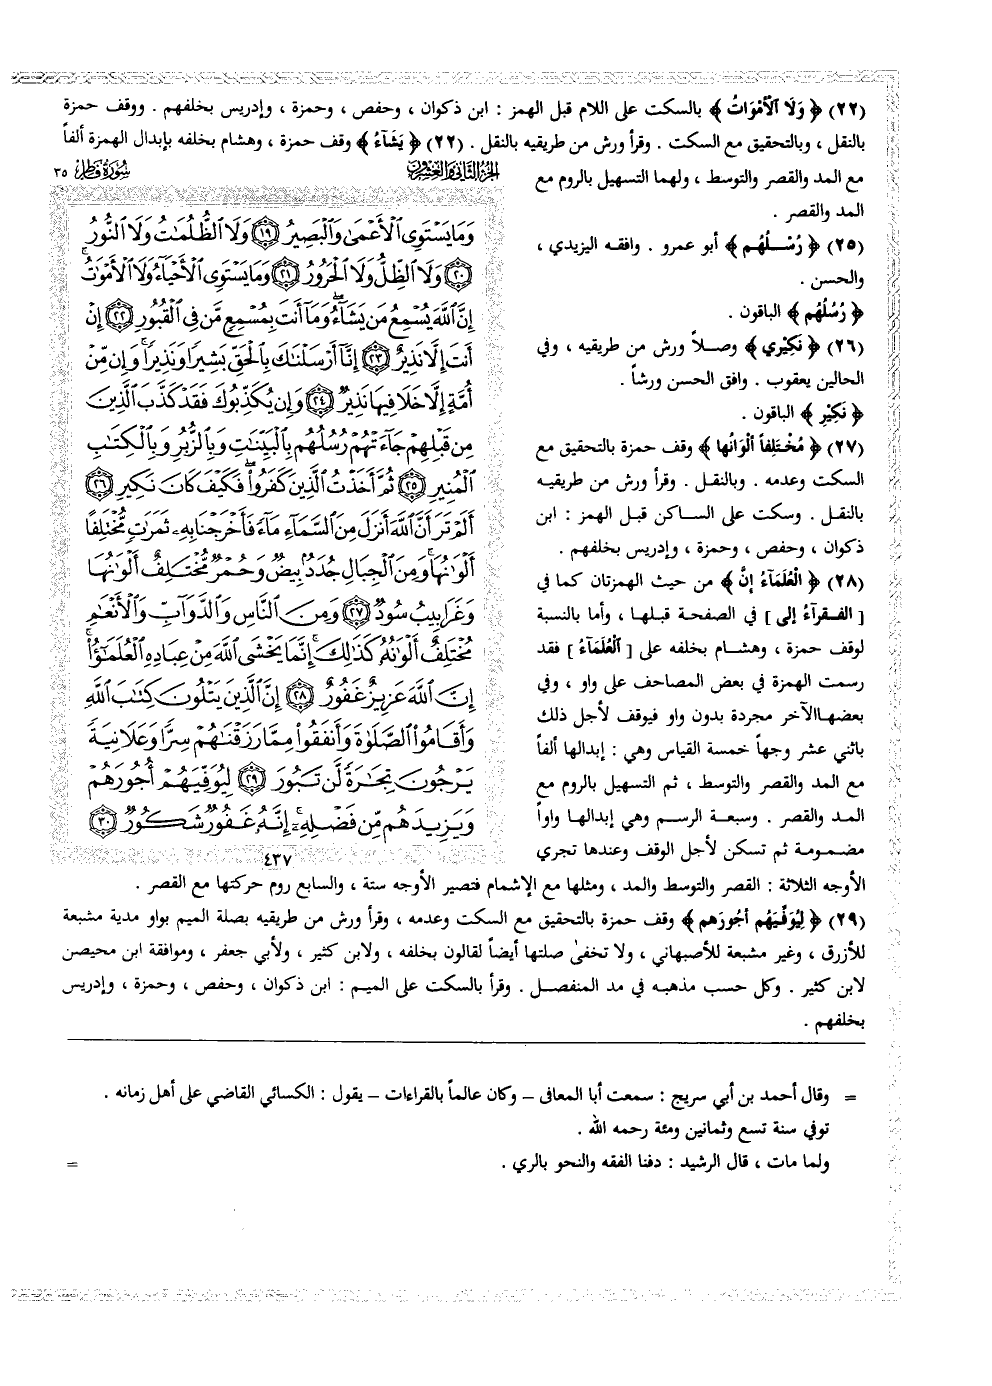 (٢٢) ﴿ وَلَا الْأَمْوَاتُ ﴾ بالسكت على اللام قبل الهمز : ابن ذكوان ، وحفص ، وحمزة ، وإدريس بخلفهم . ووقف حمزة
بالنقل ، وبالتحقيق مع السكت . وقرأ ورش من طريقيه بالنقل . (٢٢) ﴿ يَشَآءُ ﴾ وقف حمزة ، وهشام بخلفه بإبدال الهمزة ألفاً
مع المد والقصر والتوسط ، ولهما التسهيل بالروم مع
المد والقصر .
(٢٥) ﴿ رُسْـلُهُم ﴾ أبو عمرو . وافقه اليزيدي ،
والحسن .
﴿ رُسُلُهُم ﴾ الباقون .
(٢٦) ﴿ نَكِيْري ﴾ وصـلاً ورش من طريقيه ، وفي
الحالين يعقوب . وافق الحسن ورشاً .
﴿ نَكِيْرِ ﴾ الباقون .
(٢٧) ﴿ مُخْتَلِفاً أَلْوَانُها ﴾ وقف حمزة بالتحقيق مع
السكت وعدمه . وبالنقل . وقرأ ورش من طريقيـه
بالنقل . وسكت على الساكن قبل الهمز : ابن
ذكوان ، وحفص ، وحمزة ، وإدريس بخلفهم .
(٢٨) ﴿ الْعُلَمَآءُ إِنَّ ﴾ من حيث الهمزتان كما في
[ الفـقرآءُ إلى ] في الصفحة قبلهـا ، وأما بالنسبة
لوقف حمزة ، وهشام بخلفه على [ الْعُلَمَآءُ ] فقد
رسمت الهمزة في بعض المصاحف على واو ، وفي
بعضهاالآخر مجردة بدون واو فيوقف لأجل ذلك
باثني عشر وجهاً خمسة القياس وهي : إبدالها ألفاً
مع المد والقصر والتوسط ، ثم التسهيل بالروم مع
المـد والقصر . وسبعـة الرسـم وهي إبدالهـا واواً
مضـمومة ثم تسكن لأجل الوقف وعندها تجري
الأوجه الثلاثة : القصر والتوسط والمد ، ومثلها مع الإشمام فتصير الأوجه ستة ، والسابع روم حركتها مع القصر .
(٢٩) ﴿ لِيُوَفِّيَهُم أجُورَهم ﴾ وقف حمزة بالتحقيق مع السكت وعدمه ، وقرأ ورش من طريقيه بصلة الميم بواو مدية مشبعة
للأزرق ، وغير مشبعة للأصبهاني ، ولا تخفىٰ صلتها أيضاً لقالون بخلفه ، ولابن كثير ، ولأبي جعفر ، وموافقة ابن محيصن
لابن كثير . وكل حسب مذهبـه في مد المنفصـل . وقرأ بالسكت على الميم : ابن ذكوان ، وحفص ، وحمزة ، وإدريس
بخلفهم .
سُورَةُ فَاطِرٍ ٣٥
الجُزْءُ الثَّانِي وَالعِشْرُونَ
وَمَا يَسْتَوِى ٱلْأَعْمَىٰ وَٱلْبَصِيرُ ١٩ وَلَا ٱلظُّلُمَٰتُ وَلَا ٱلنُّورُ
٢٠ وَلَا ٱلظِّلُّ وَلَا ٱلْحَرُورُ ٢١ وَمَا يَسْتَوِى ٱلْأَحْيَآءُ وَلَا ٱلْأَمْوَٰتُ
إِنَّ ٱللَّهَ يُسْمِعُ مَن يَشَآءُ وَمَآ أَنتَ بِمُسْمِعٍ مَّن فِى ٱلْقُبُورِ ٢٢ إِنْ
أَنتَ إِلَّا نَذِيرٌ ٢٣ إِنَّآ أَرْسَلْنَٰكَ بِٱلْحَقِّ بَشِيرًا وَنَذِيرًا وَإِن مِّنْ
أُمَّةٍ إِلَّا خَلَا فِيهَا نَذِيرٌ ٢٤ وَإِن يُكَذِّبُوكَ فَقَدْ كَذَّبَ ٱلَّذِينَ
مِن قَبْلِهِمْ جَآءَتْهُمْ رُسُلُهُم بِٱلْبَيِّنَٰتِ وَبِٱلزُّبُرِ وَبِٱلْكِتَٰبِ
ٱلْمُنِيرِ ٢٥ ثُمَّ أَخَذْتُ ٱلَّذِينَ كَفَرُوا۟ فَكَيْفَ كَانَ نَكِيرِ ٢٦
أَلَمْ تَرَ أَنَّ ٱللَّهَ أَنزَلَ مِنَ ٱلسَّمَآءِ مَآءً فَأَخْرَجْنَا بِهِۦ ثَمَرَٰتٍ مُّخْتَلِفًا
أَلْوَٰنُهَا وَمِنَ ٱلْجِبَالِ جُدَدٌۢ بِيضٌ وَحُمْرٌ مُّخْتَلِفٌ أَلْوَٰنُهَا
وَغَرَابِيبُ سُودٌ ٢٧ وَمِنَ ٱلنَّاسِ وَٱلدَّوَآبِّ وَٱلْأَنْعَٰمِ
مُخْتَلِفٌ أَلْوَٰنُهُۥ كَذَٰلِكَ إِنَّمَا يَخْشَى ٱللَّهَ مِنْ عِبَادِهِ ٱلْعُلَمَٰٓؤُا۟
إِنَّ ٱللَّهَ عَزِيزٌ غَفُورٌ ٢٨ إِنَّ ٱلَّذِينَ يَتْلُونَ كِتَٰبَ ٱللَّهِ
وَأَقَامُوا۟ ٱلصَّلَوٰةَ وَأَنفَقُوا۟ مِمَّا رَزَقْنَٰهُمْ سِرًّا وَعَلَانِيَةً
يَرْجُونَ تِجَٰرَةً لَّن تَبُورَ ٢٩ لِيُوَفِّيَهُمْ أُجُورَهُمْ
وَيَزِيدَهُم مِّن فَضْلِهِۦٓ إِنَّهُۥ غَفُورٌ شَكُورٌ ٣٠
٤٣٧
= وقال أحمد بن أبي سريج : سمعت أبا المعافى – وكان عالماً بالقراءات – يقول : الكسائي القاضي على أهل زمانه .
توفي سنة تسع وثمانين ومئة رحمه الله .
ولما مات ، قال الرشيد : دفنا الفقه والنحو بالري . =